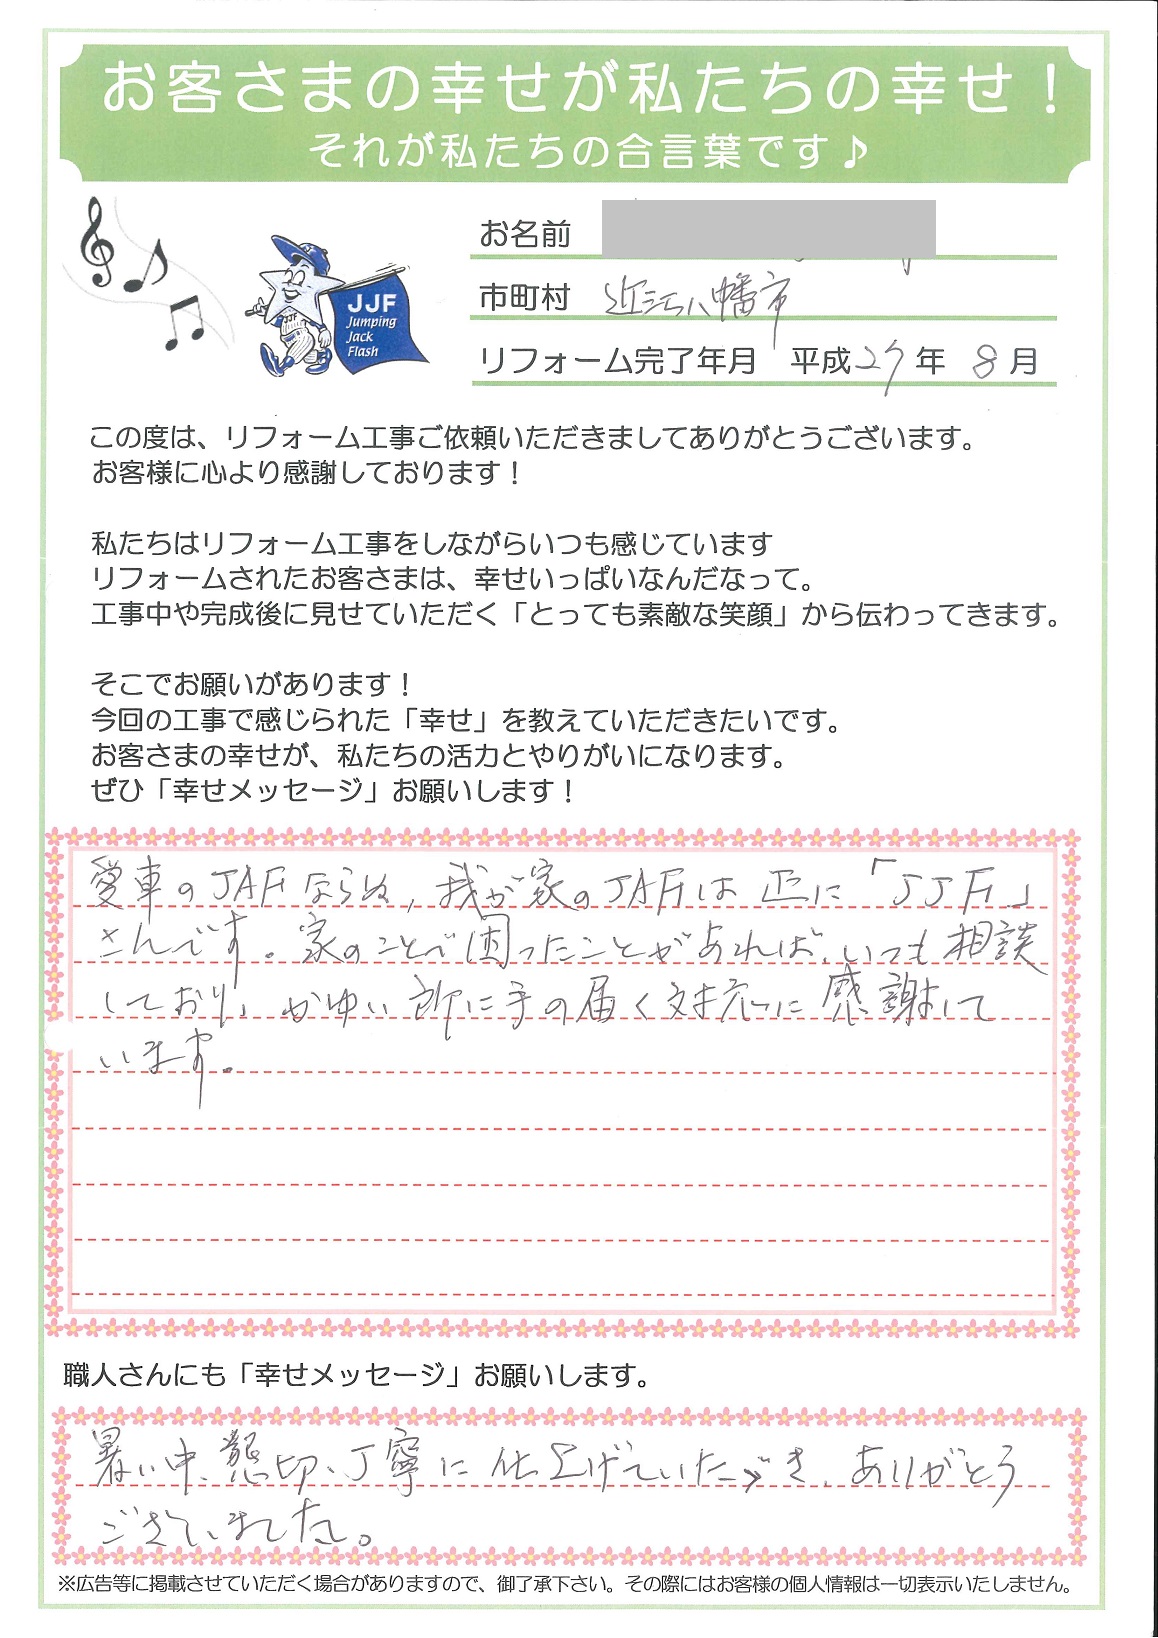 お客さまの幸せが私たちの幸せ！
それが私たちの合言葉です♪
お名前
市町村 近江八幡市
リフォーム完了年月 平成27年 8月
JJF
JJF
Jumping
Jack
Flash
この度は、リフォーム工事ご依頼いただきましてありがとうございます。
お客様に心より感謝しております！
私たちはリフォーム工事をしながらいつも感じています
リフォームされたお客さまは、幸せいっぱいなんだなって。
工事中や完成後に見せていただく「とっても素敵な笑顔」から伝わってきます。
そこでお願いがあります！
今回の工事で感じられた「幸せ」を教えていただきたいです。
お客さまの幸せが、私たちの活力とやりがいになります。
ぜひ「幸せメッセージ」お願いします！
愛車のJAFならぬ，我が家のJAFは正に「JJF」
さんです。家のことで困ったことがあれば、いつも相談
しており、かゆい所に手の届く対応に感謝して
います。
職人さんにも「幸せメッセージ」お願いします。
暑い中、懇切、丁寧に仕上げていただき、ありがとう
ございました。
※広告等に掲載させていただく場合がありますので、御了承下さい。その際にはお客様の個人情報は一切表示いたしません。